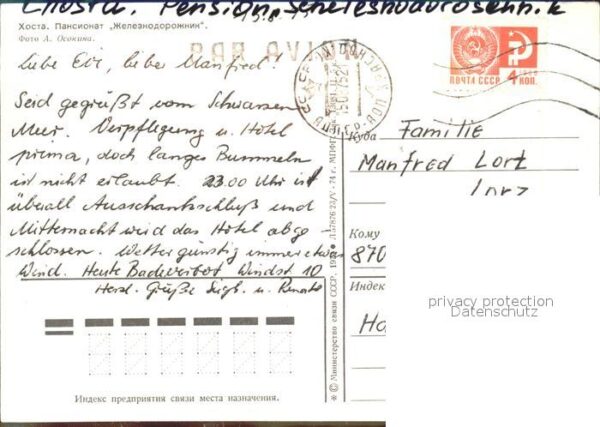 Chosta. Pension Schelesnodoroschnik
Хоста. Пансионат „Железнодорожник".
Фото А. Осокина.
Liebe Evi, lieber Manfred!
Seid gegrüßt vom Schwarzen
Meer. Verpflegung u. Hotel
prima, doch langes Bummeln
ist nicht erlaubt. 23.00 Uhr ist
überall Ausschankschluß und
Mitternacht wird das Hotel abge-
schlossen. Wetter günstig immer etwas
Wind. Heute Badeverbot Windst 10
Herzl. Grüße Siegb. u. Renate
Индекс предприятия связи места назначения.
© Министерство связи СССР, 1974
ПОЧТА СССР
4 КОП.
Куда
Familie
Manfred Lort
Кому
870
Индекс
Ho
privacy protection
Datenschutz